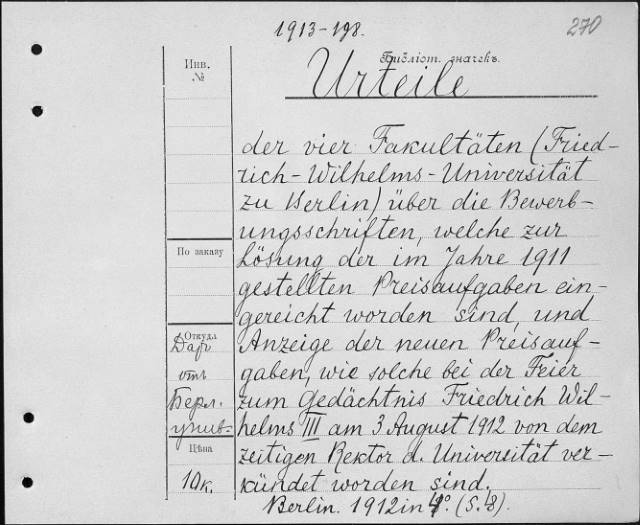 1913-198.
270
Инв.
№
Библіот. значекъ.
Urteile
der vier Fakultäten (Fried-
rich-Wilhelms-Universität
zu Berlin) über die Bewerb-
ungsschriften, welche zur
Lösung der im Jahre 1911
gestellten Preisaufgaben ein-
gereicht worden sind, und
Anzeige der neuen Preisauf-
gaben, wie solche bei der Feier
zum Gedächtnis Friedrich Wil-
helms III am 3 August 1912 von dem
zeitigen Rektor d. Universität ver-
kündet worden sind.
Berlin. 1912 in 4°. (S. 48).
По заказу
Откуда
Даръ
отъ
Берл.
унив.
Цѣна
10к.